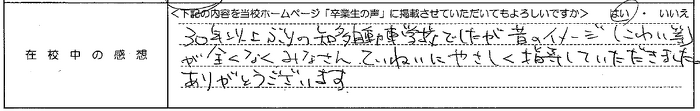 <下記の内容を当校ホームページ「卒業生の声」に掲載させていただいてもよろしいですか> はい ・ いいえ
在校中の感想
30年以上ぶりの知多自動車学校でしたが昔のイメージ(こわい等)
が全くなくみなさん ていねいにやさしく指導していただきました。
ありがとうございます